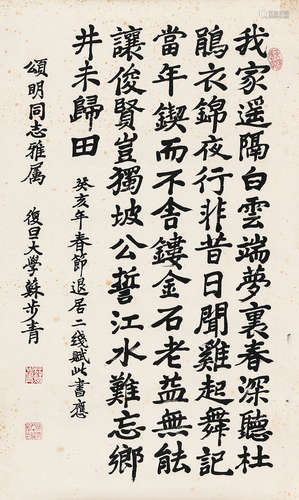 我家遥隔白雲端夢裏春深聽杜
鵑衣錦夜行非昔日聞雞起舞記
當年鍥而不舍鏤金石老益無能
讓俊賢豈獨坡公誓江水難忘鄉
井未歸田
癸亥年春節退居二綫賦此書應
頌明同志雅属
復旦大學蘇步青